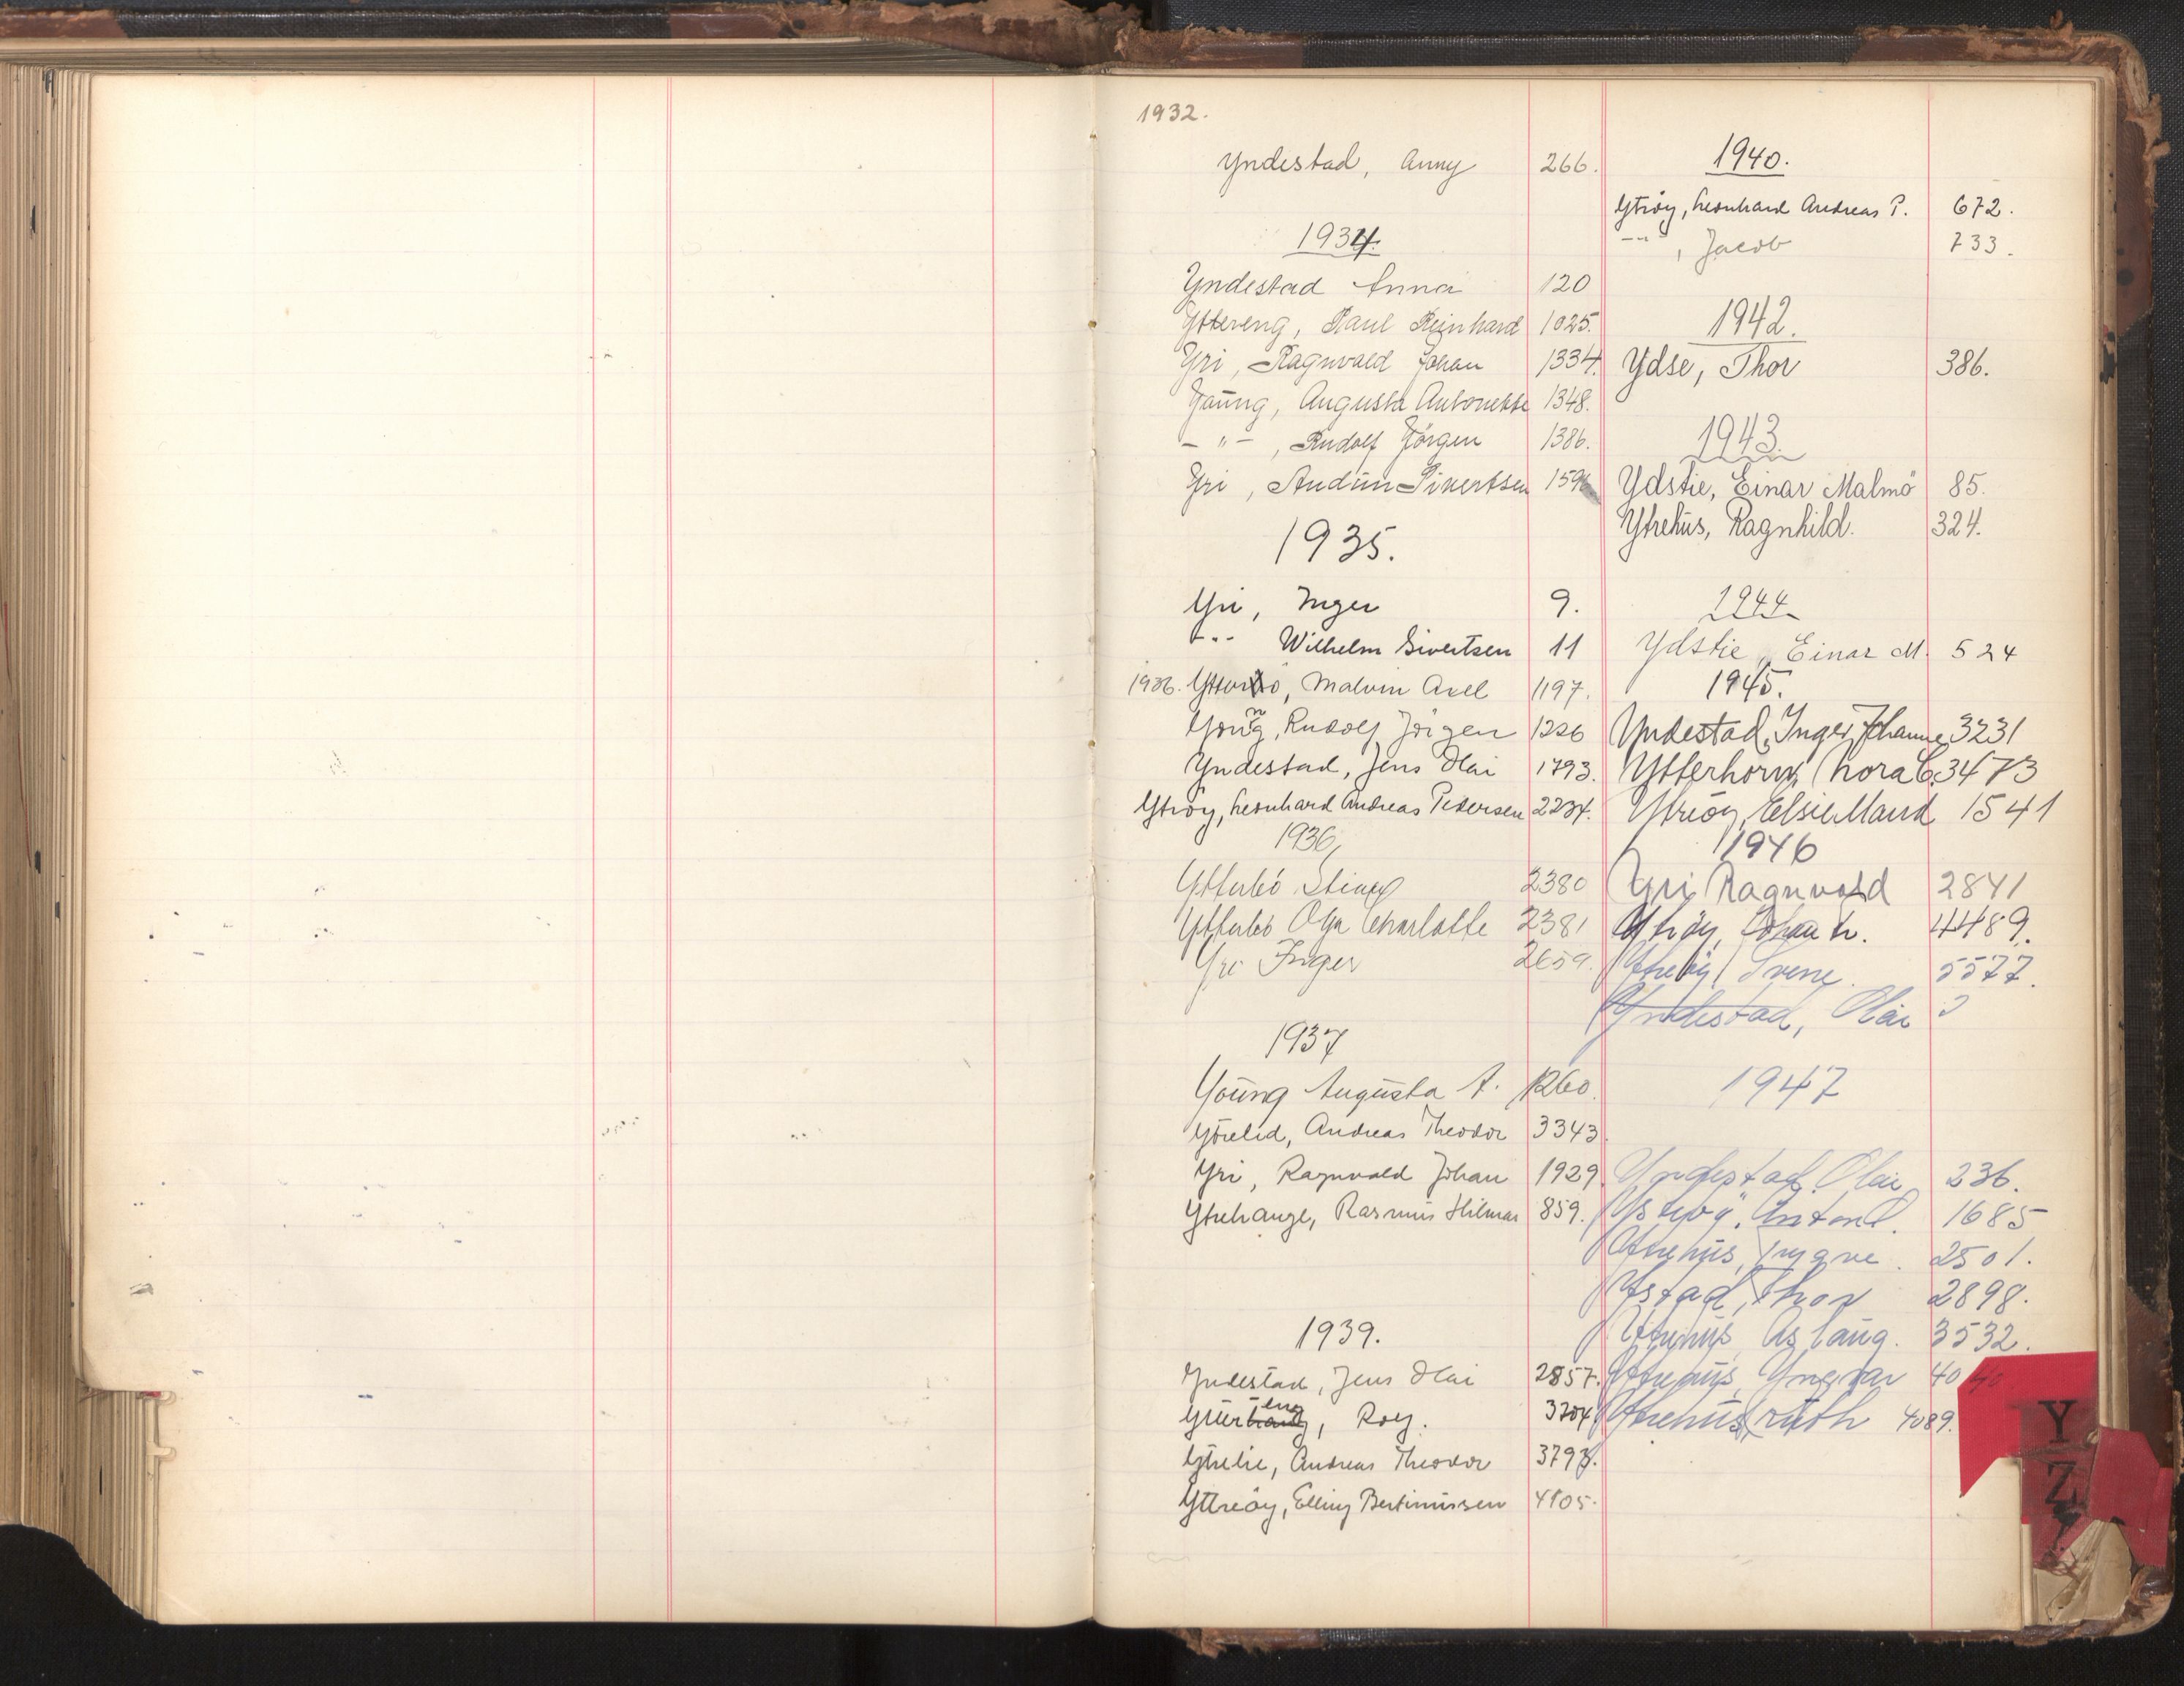 1932.
Yndestad, Anny 266.
1934.
Yndestad Anna 120
Yttereng, Paul Reinhard 1025.
Yri, Ragnvald Johan 1334.
Young, Augusta Antonette 1348.
- " - , Rudolf Jörgen 1386.
Yri, Audun Sivertsen 159
1935.
Yri, Inger 9.
- " - Wilhelm Sivertsen 11
1936. Malvin Axel 1197.
Young, Rudolf Jörgen 1226
Yndestad, Jens Olai 1793.
Ytröy, Leonhard Andreas Pedersen 2234.
1936
Ytterbö 2380
Ytterbö Olga Charlotte 2381
Yri Inger 2659.
1937
Young Augusta A. 1260.
Ytrelid, Andreas Theodor 3343
Yri, Ragnvald Johan 1929.
Ytrehauge, Rasmus Hilmar 859.
1939.
Yndestad, Jens Olai 2857.
Ytter eng, Roy. 3704
Ytrelie, Andreas Theodor 3793.
Yttreöy, Elling Bertinussen 4105.
1940.
Ytröy, Leonhard Andreas P. 672.
- " - , Jacob 733.
1942.
Ydse, Thor 386.
1943.
Ydstie, Einar Malmö 85.
Ytrehus, Ragnhild. 324.
1944
Ydstie, Einar M. 524
1945.
Yndestad, Inger Johanne 3231
Ytterhorn, Nora C. 3473
Ytreöy, Elsie Maud 1541
1946
Yri, Ragnvald 2841
Ytröy, Johan 4489.
Ytreöy, Svene. 5577.
Yndestad, Olai
1947
Yndestad, Olai 236.
Anton 1685
Ytrehus, Yngve. 2501.
Ystad, Thor 2898.
Ytrehus, Aslaug. 3532.
Ytrehus, Yngvar 40
Ytrehus, Ruth 4089.
Y
Z